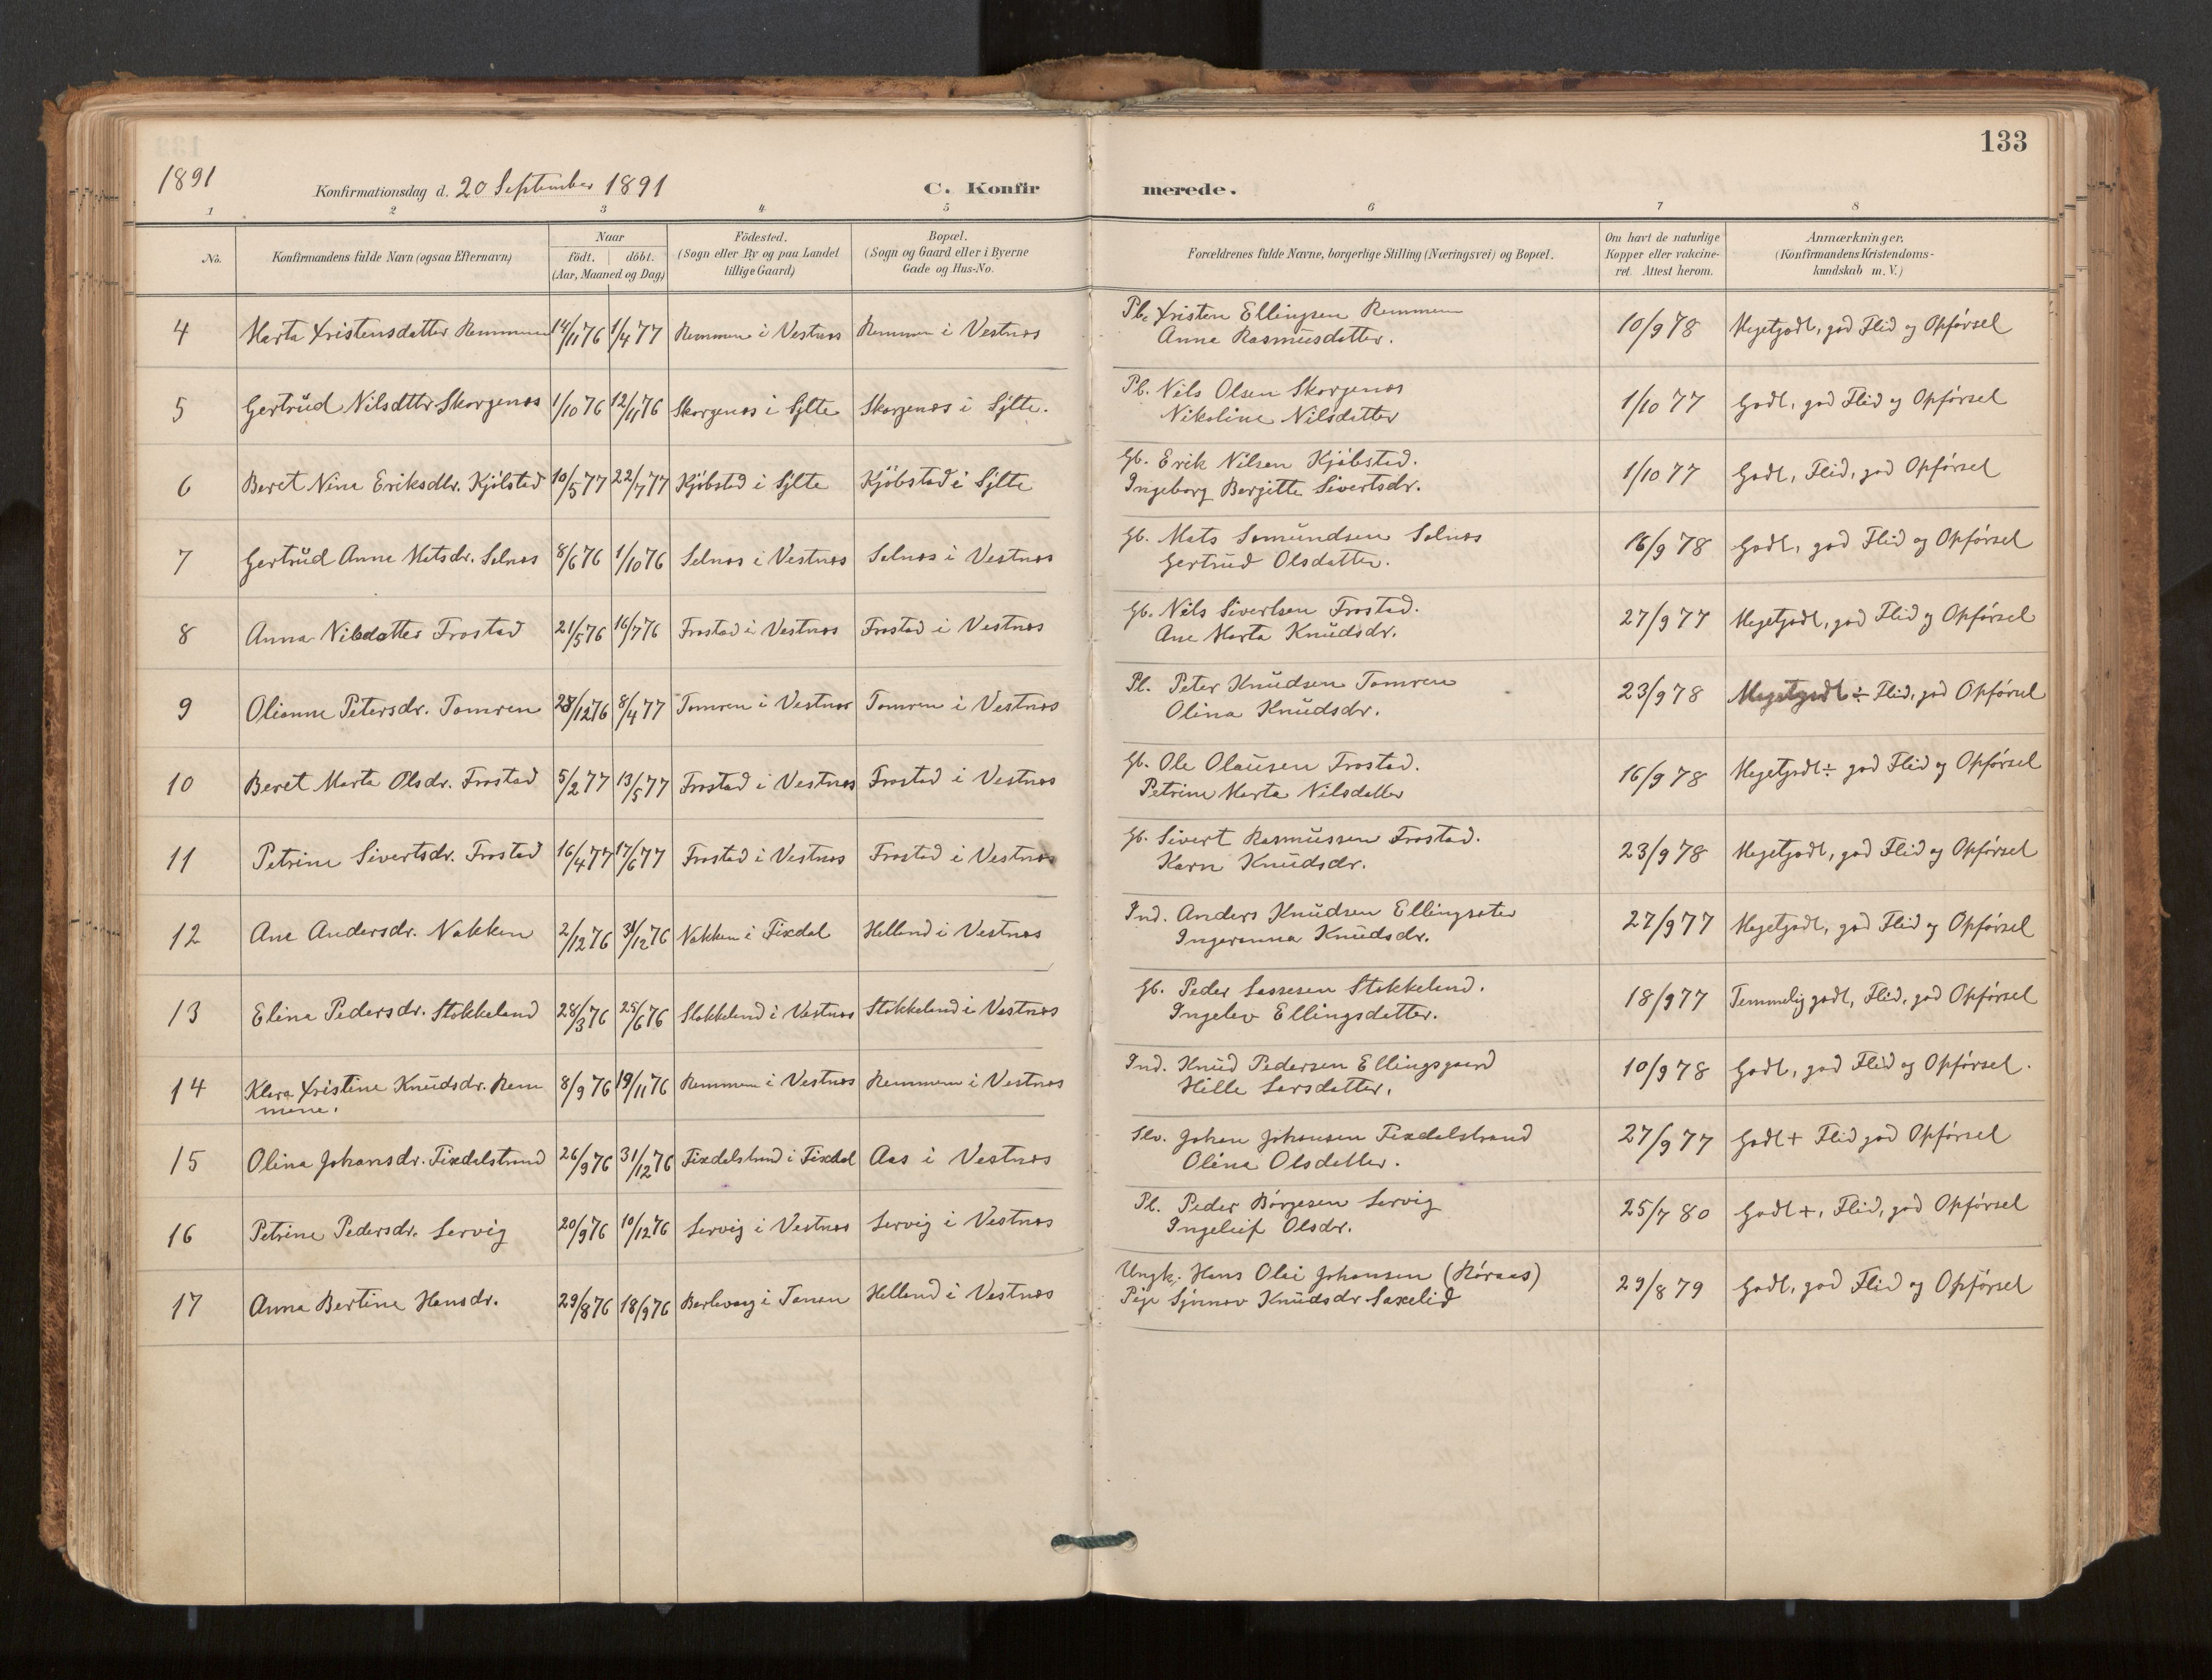 133
1891
Konfirmationsdag d. 20 September 1891
C. Konfir
merede.
1 2 3 4 5 6 7 8
No.
Konfirmandens fulde Navn (ogsaa Efternavn)
Naar
født. døbt.
(Aar, Maaned og Dag)
Födested.
(Sogn eller By og paa Landet
tillige Gaard)
Bopæl.
(Sogn og Gaard eller i Byerne
Gade og Hus-No.
Forældrenes fulde Navne, borgerlige Stilling (Næringsvei) og Bopæl.
Om havt de naturlige
Kopper eller vakcine-
ret. Attest herom.
Anmærkninger.
(Konfirmandens Kristendoms-
kundskab m. V.)
4 Marta Xristensdatter Remmem 14/11 76 1/4 77 Remmem i Vestnæs Remmem i Vestnæs Pl. Xristen Ellingsen Remmem 10/9 78 Megetgodt, god Flid og Opførsel
Anne Rasmusdatter.
5 Gertrud Nilsdttr Skorgenæs 1/10 76 12/11 76 Skorgenæs i Sylte Skorgenæs i Sylte. Pl. Nils Olsen Skorgenæs 1/10 77 Godt, god Flid og Opførsel
Nikoline Nilsdatter
6 Beret Nina Eriksdtr. Kjölstad 10/5 77 22/7 77 Kjöbstad i Sylte Kjöbstad i Sylte Gb. Erik Nilsen Kjöbstad. 1/10 77 Godt, Flid, god Opførsel
Ingeborg Bergitte Sivertsdr.
7 Gertrud Anne Matsdr. Selnæs 8/6 76 1/10 76 Selnæs i Vestnæs Selnæs i Vestnæs Gb. Mats Samundsen Selnæs 16/9 78 Godt, god Flid og Opførsel
Gertrud Olsdatter.
8 Anna Nilsdatter Frostad 21/5 76 16/7 76 Frostad i Vestnæs Frostad i Vestnæs Gb. Nils Sivertsen Frostad. 27/9 77 Megetgodt, god Flid og Opførsel
Ane Marta Knudsdr.
9 Olianne Petersdr. Tomren 28/12 76 8/4 77 Tomren i Vestnæs Tomren i Vestnæs Pl. Peter Knudsen Tomren 23/9 78 Megetgodt ÷ Flid, god Opførsel
Olina Knudsdr.
10 Beret Marta Olsdr. Frostad 5/2 77 13/5 77 Frostad i Vestnæs Frostad i Vestnæs Gb. Ole Olausen Frostad. 16/9 78 Megetgodt ÷ god Flid og Opførsel
Petrine Marta Nilsdatter
11 Petrine Sivertsdr. Frostad 16/4 77 17/6 77 Frostad i Vestnæs Frostad i Vestnæs Gb. Sivert Rasmussen Frostad. 23/9 78 Megetgodt, god Flid og Opførsel
Karn Knudsdr.
12 Ane Andersdr. Nakken 2/12 76 31/12 76 Nakken i Fixdal Helland i Vestnæs Ind. Anders Knudsen Ellingsæter 27/9 77 Megetgodt, god Flid og Opførsel
Ingeranna Knudsdr.
13 Elina Pedersdr. Stokkeland 28/3 76 25/6 76 Stokkeland i Vestnæs Stokkeland i Vestnæs Gb. Peder Lassesen Stokkeland. 18/9 77 Temmelig godt, Flid, god Opførsel
Ingelev Ellingsdatter.
14 Klara Xristine Knudsdr. Rem 8/9 76 19/11 76 Remmem i Vestnæs Remmem i Vestnæs Ind. Knud Pedersen Ellingsgaard 10/9 78 Godt, god Flid og Opførsel.
mene. Hille Larsdatter.
15 Olina Johansdr. Fixdalstrand 26/9 76 31/12 76 Fixdalstrand i Fixdal Aas i Vestnæs Slv. Johan Johansen Fixdalstrand 27/9 77 Godt + Flid god Opførsel
Olina Olsdatter.
16 Petrine Pedersdr. Lervig 20/9 76 10/12 76 Lervig i Vestnæs Lervig i Vestnæs Pl. Peder Børgesen Lervig 25/7 80 Godt +, Flid, god Opførsel
Ingeleif Olsdr.
17 Anna Bertine Hansdr. 29/8 76 18/9 76 Berlevaag i Tanen Helland i Vestnæs Ungk. Hans Olai Johansen (Røraas) 29/8 79 Godt, god Flid og Opførsel
Pige Synnøv Knudsdr Saxelid